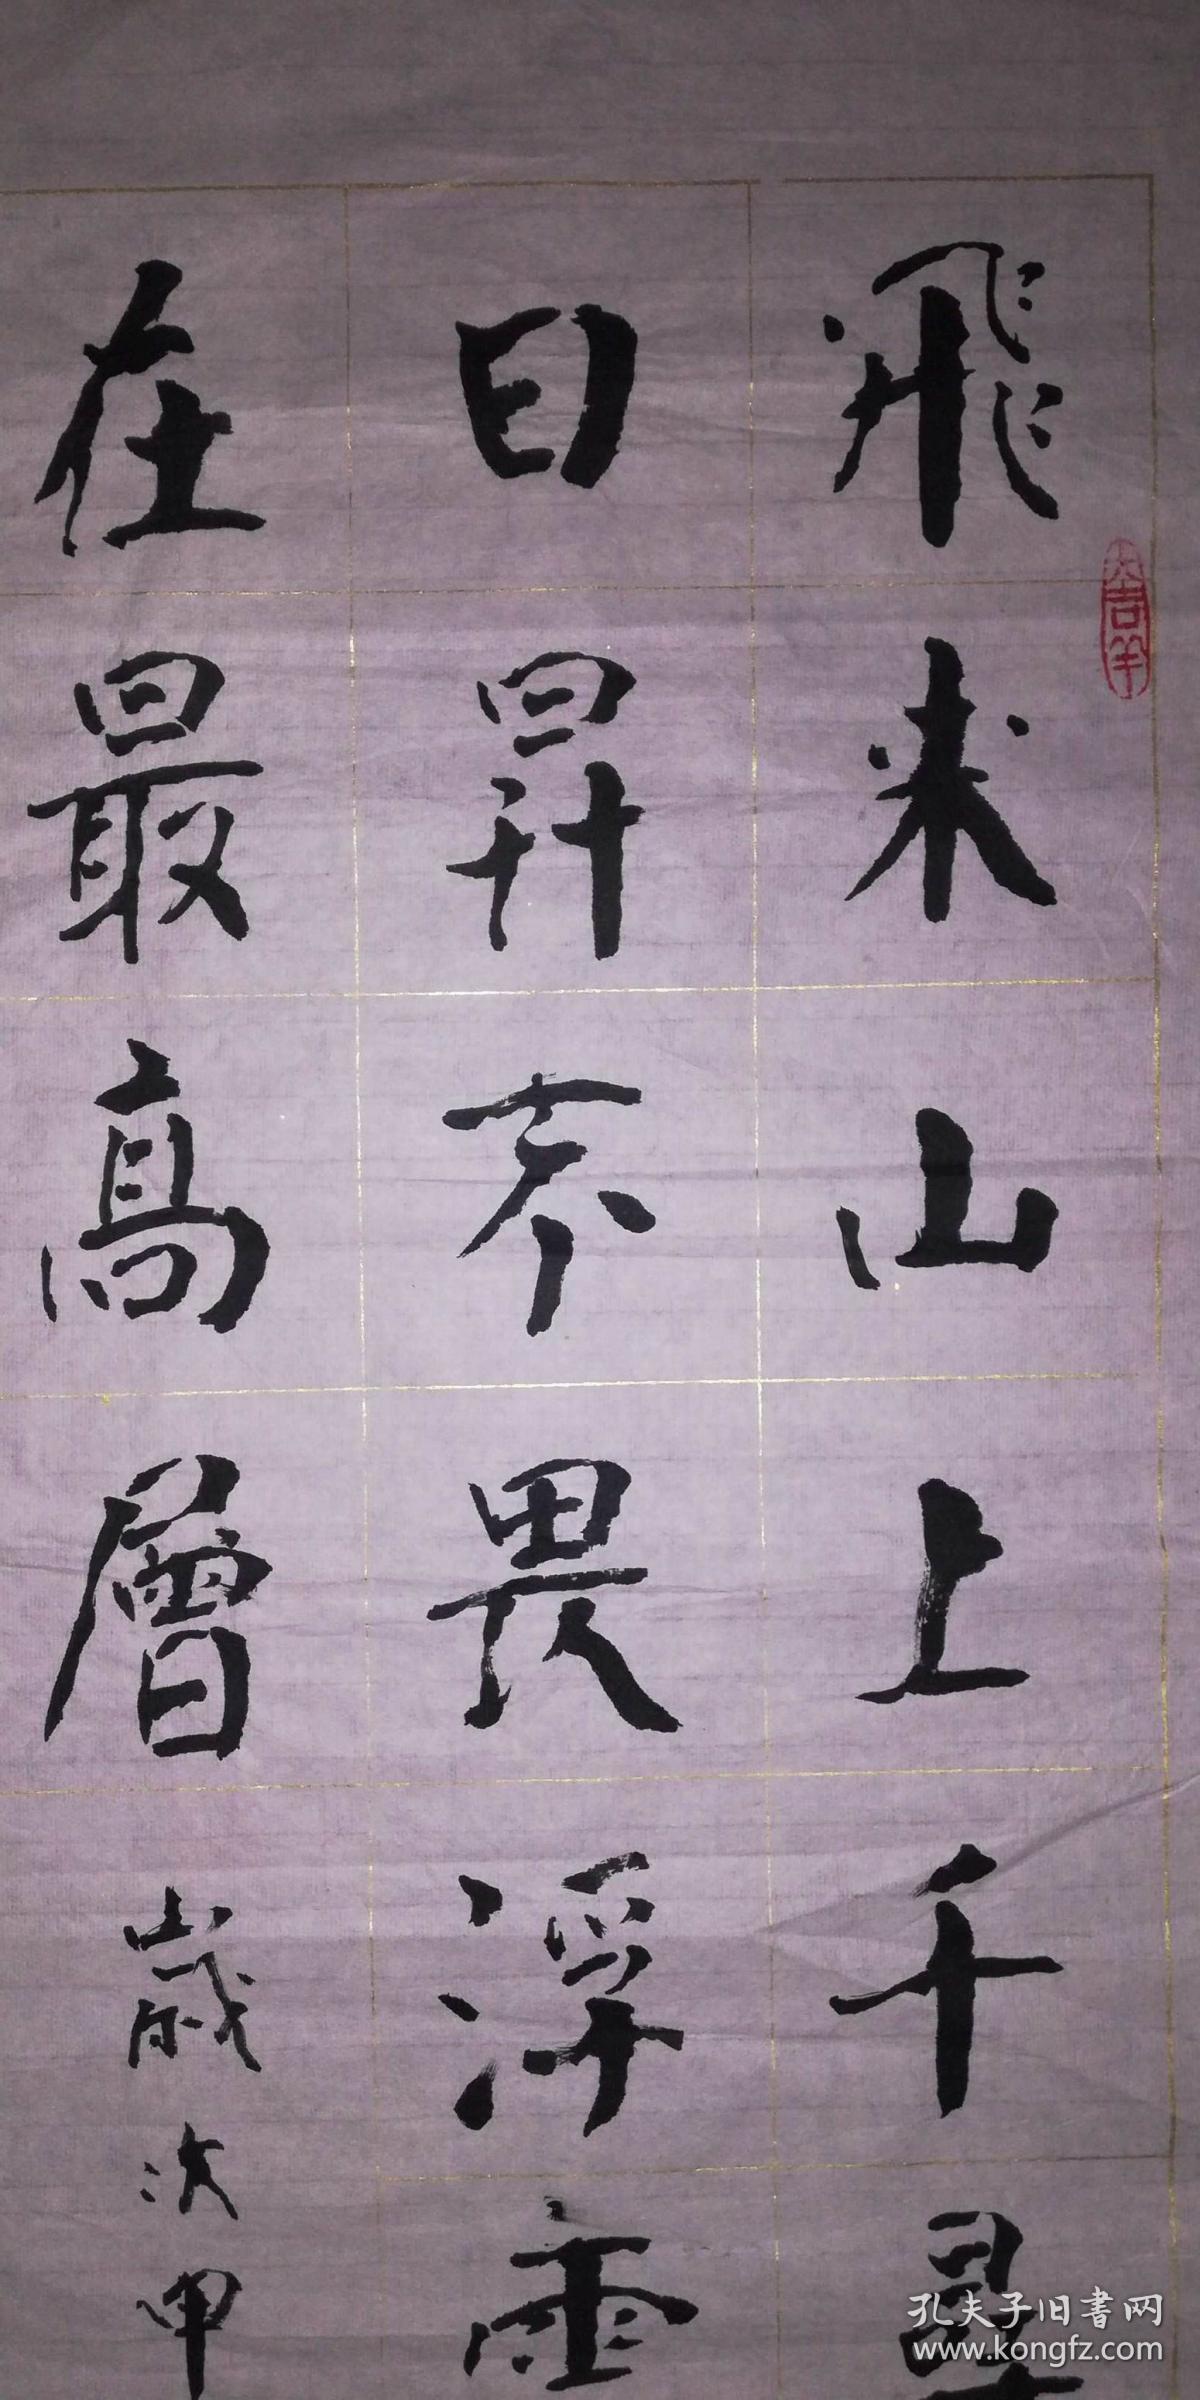 飛来山上千尋
日昇不畏浮雲
在最高層歲次甲
大吉羊
孔夫子旧書网
www.kongfz.com